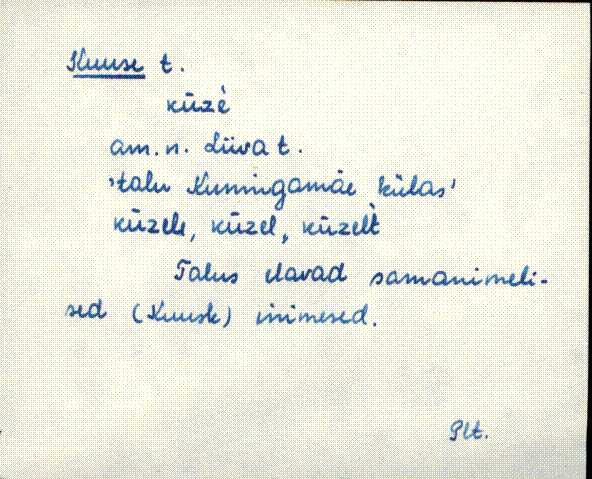 Kuuse t.
kūzè
am. n. Liiva t.
'talu Kuningamäe külas'
kūzele, kūzel, kūzelt̀
Talus elavad samanimeli-
sed (Kuusk) inimesed.
Plt.